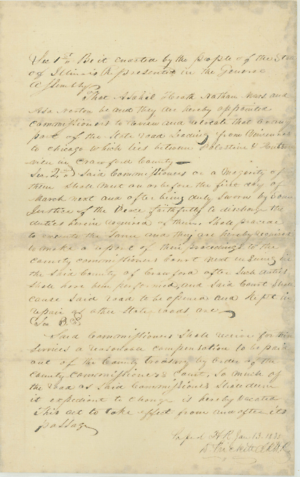 Sec 1st Be it enacted by the people of the State
of Illinois Represented in the General
Assembly
That
be and they are hereby appointed
Commissioners to review and relocate that
part of the State road leading from Vincennes
to Chicago which lies between Palestine &
in Crawford County
Sec. 2. Said Commissioners or a Majority of
them shall meet on or before the first day of
March next and after being duly sworn by some
Justice of the Peace faithfully to discharge the
duties required of them shall proceed
to the same and they are hereby required
to make a report of their proceedings to the
County Commissioners Court
the said County of Crawford after such duties
shall have been performed, and said Court shall
cause said road to be opened and kept in
repair as other State roads are
Sec 3.
Said Commissioners shall receive for their
services a reasonable compensation to be paid
out of the County Treasury by order of the
County Commissioners Court, so much of
the road as said Commissioners shall deem
it expedient to change is hereby vacated
This act to take effect from and after its
passage
H. R. Jan. 13.